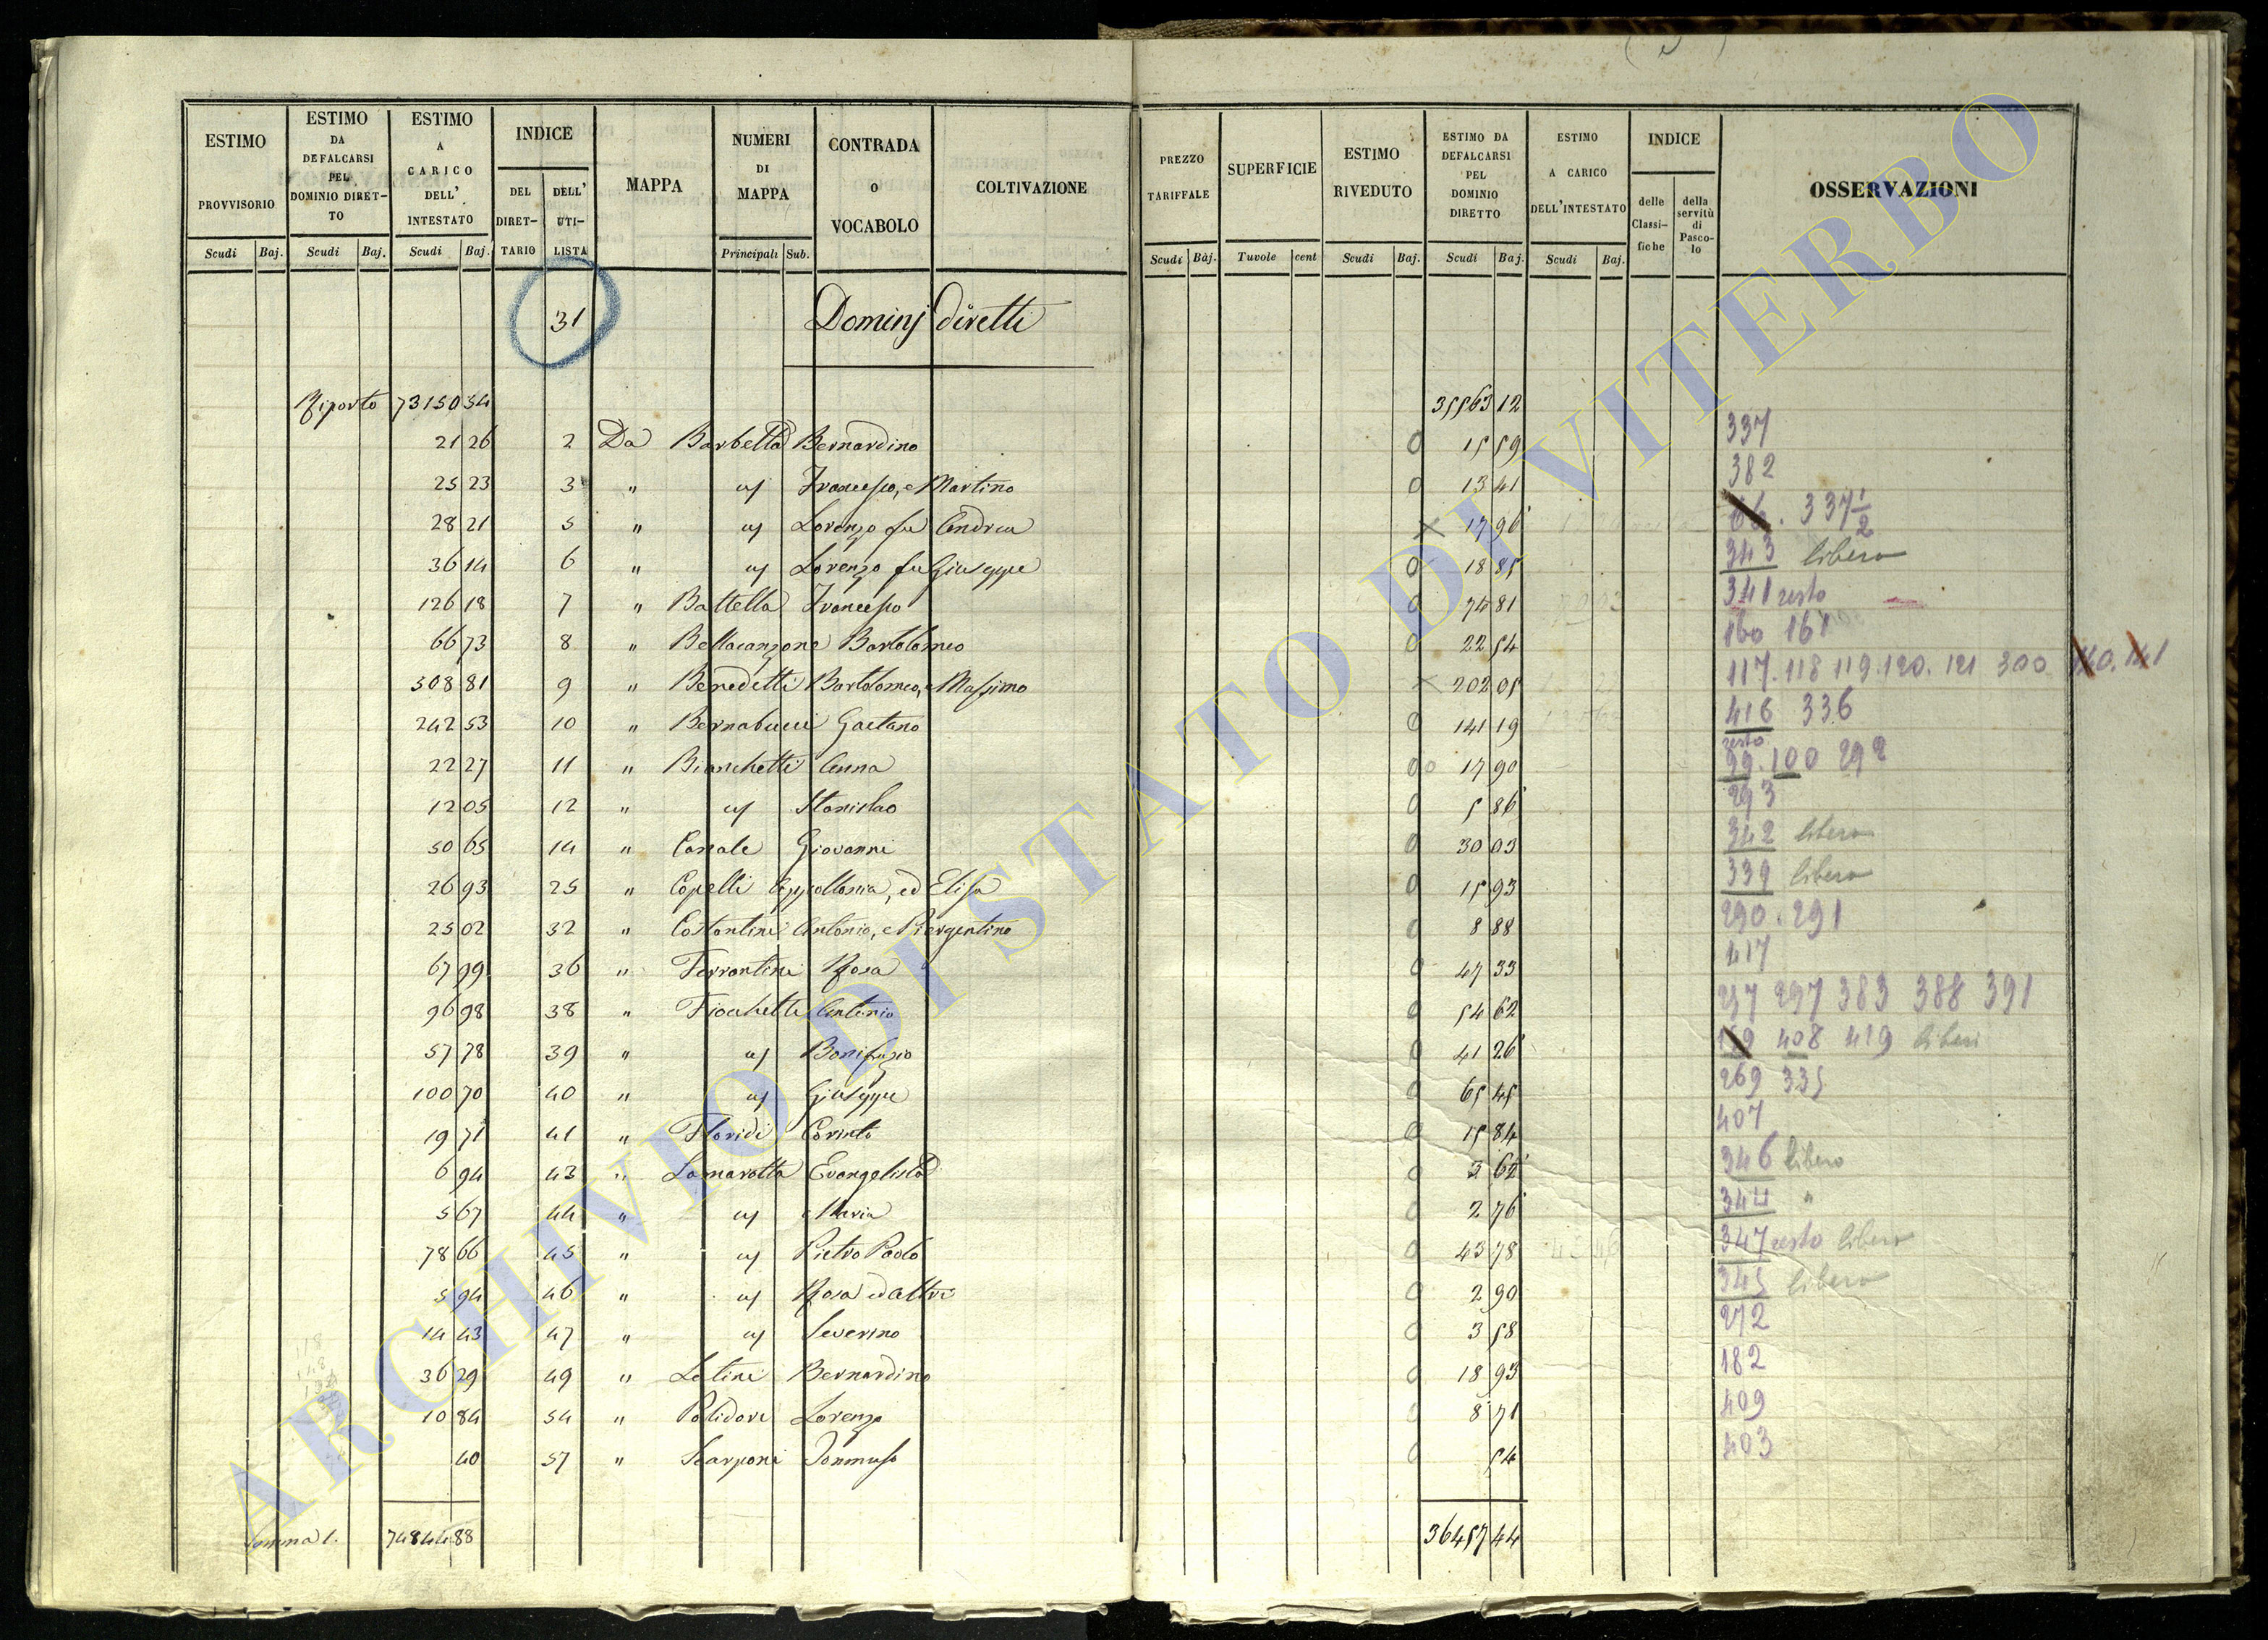 ESTIMO PROVVISORIO Scudi Baj.
ESTIMO DA DEFALCARSI PEL DOMINIO DIRETTO Scudi Baj.
ESTIMO A CARICO DELL' INTESTATO Scudi Baj.
INDICE DEL DIRETTARIO DELL' UTILISTA
MAPPA
NUMERI DI MAPPA Principali Sub.
CONTRADA O VOCABOLO
COLTIVAZIONE
PREZZO TARIFFALE Scudi Baj.
SUPERFICIE Tavole cent
ESTIMO RIVEDUTO Scudi Baj.
ESTIMO DA DEFALCARSI PEL DOMINIO DIRETTO Scudi Baj.
ESTIMO A CARICO DELL'INTESTATO Scudi Baj.
INDICE delle Classifiche della servitù di Pascolo
OSSERVAZIONI
31 Dominj diretti
Riporto 73150 34 35563 12
21 26 2 Da Barbetta Bernardino 0 15 59 337
25 23 3 " uj Francesco, e Martino 0 13 41 382
28 21 5 " uj Lorenzo fu Andrea X 17 96 337 1/2
36 14 6 " uj Lorenzo fu Giuseppe 0 18 85 343 libero
126 18 7 " Battella Francesco 0 74 81 341 resto
66 73 8 " Bellacanzone Bartolomeo 0 22 54 160 161
308 81 9 " Benedetti Bartolomeo, e Massimo X 202 05 117. 118 119. 120. 121 300 140. 141
242 53 10 " Bernabucci Gaetano 0 141 19 416 336
resto
22 27 11 " Bianchetti Anna 0 0 17 90 99. 100 292
12 05 12 " uj Stanislao 0 5 86 293
50 65 14 " Casale Giovanni 0 30 03 342 libero
26 93 25 " Copelli Appollonia, ed Elisa 0 15 93 339 libero
25 02 32 " Costantini Antonio, e Piergentino 0 8 88 290. 291
67 99 36 " Ferrantini Rosa 0 47 33 417
96 98 38 " Fiocchetti Antonio 0 54 62 297 383 388 391
57 78 39 " uj Bonifazio 0 41 26 408 419 liberi
100 70 40 " uj Giuseppe 0 65 45 269 335
19 71 41 " Floridi Corinto 0 15 84 407
6 94 43 " Lamarotta Evangelista 0 3 62 346 libero
5 67 44 " uj Maria 0 2 76 344 "
78 66 45 " uj Pietro Paolo 0 43 78 347 resto libero
5 94 46 " uj Rosa ed altri 0 2 90 345 libero
14 43 47 " uj Severino 0 3 58 272
36 29 49 " Letini Bernardino 0 18 93 182
10 84 54 " Polidori Lorenzo 0 8 71 409
40 57 " Scarponi Tommaso 0 54 403
Somma 74844 88 36457 44
ARCHIVIO DI STATO DI VITERBO